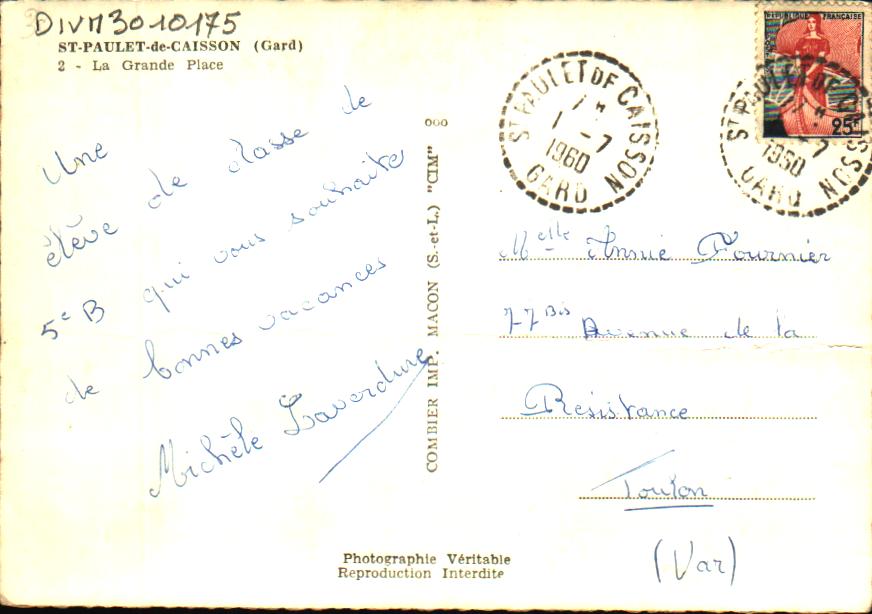 DIVM3010175
ST-PAULET-de-CAISSON (Gard)
2 - La Grande Place
Une élève de classe de
5e B qui vous souhaite
de bonnes vacances
Michèle Laverdure
ooo
COMBIER IMP. MACON (S.-et-L.) "CIM"
Photographie Véritable
Reproduction Interdite
ST PAULET DE CAISSON
1 - 7
1960
GARD
REPUBLIQUE FRANÇAISE
25F
ST PAULET DE CAISSON
- 7
1960
GARD
Melle Annie Fournier
77 Bis Avenue de la
Résistance
Toulon
(Var)